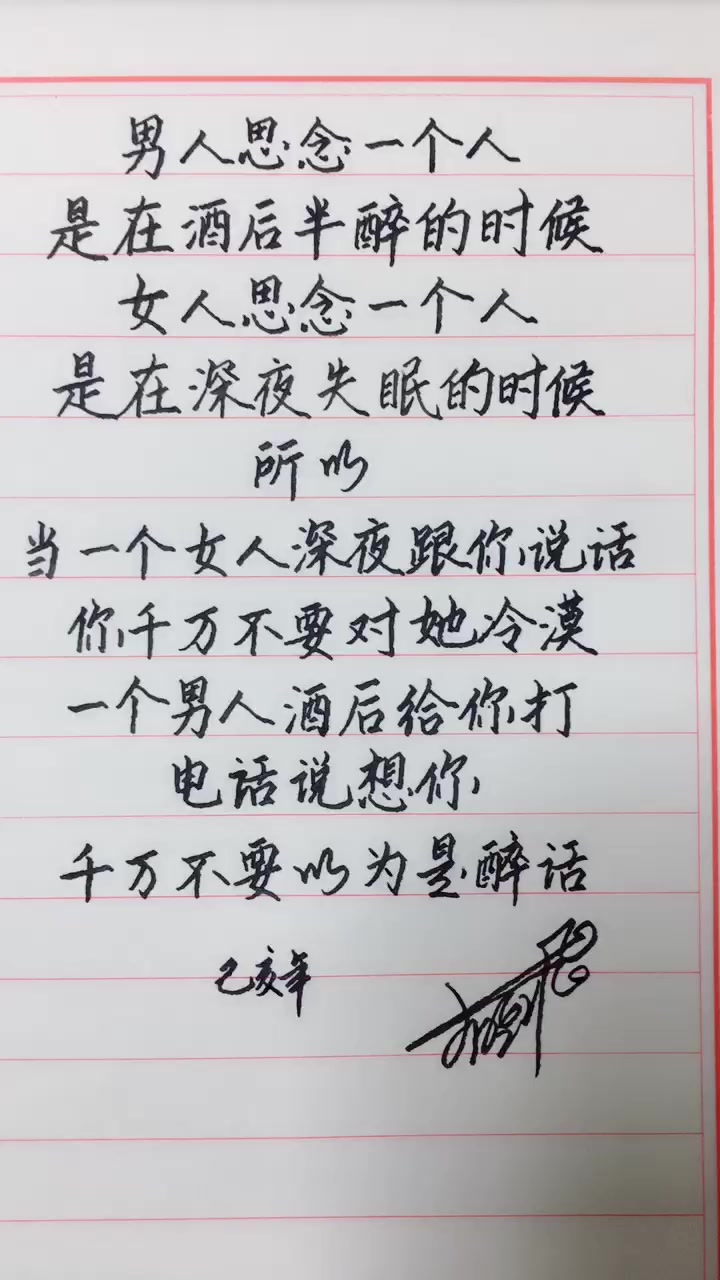 男人思念一个人
是在酒后半醉的时候
女人思念一个人
是在深夜失眠的时候
所以
当一个女人深夜跟你说话
你千万不要对她冷漠
一个男人酒后给你打
电话说想你
千万不要以为是醉话
己亥年